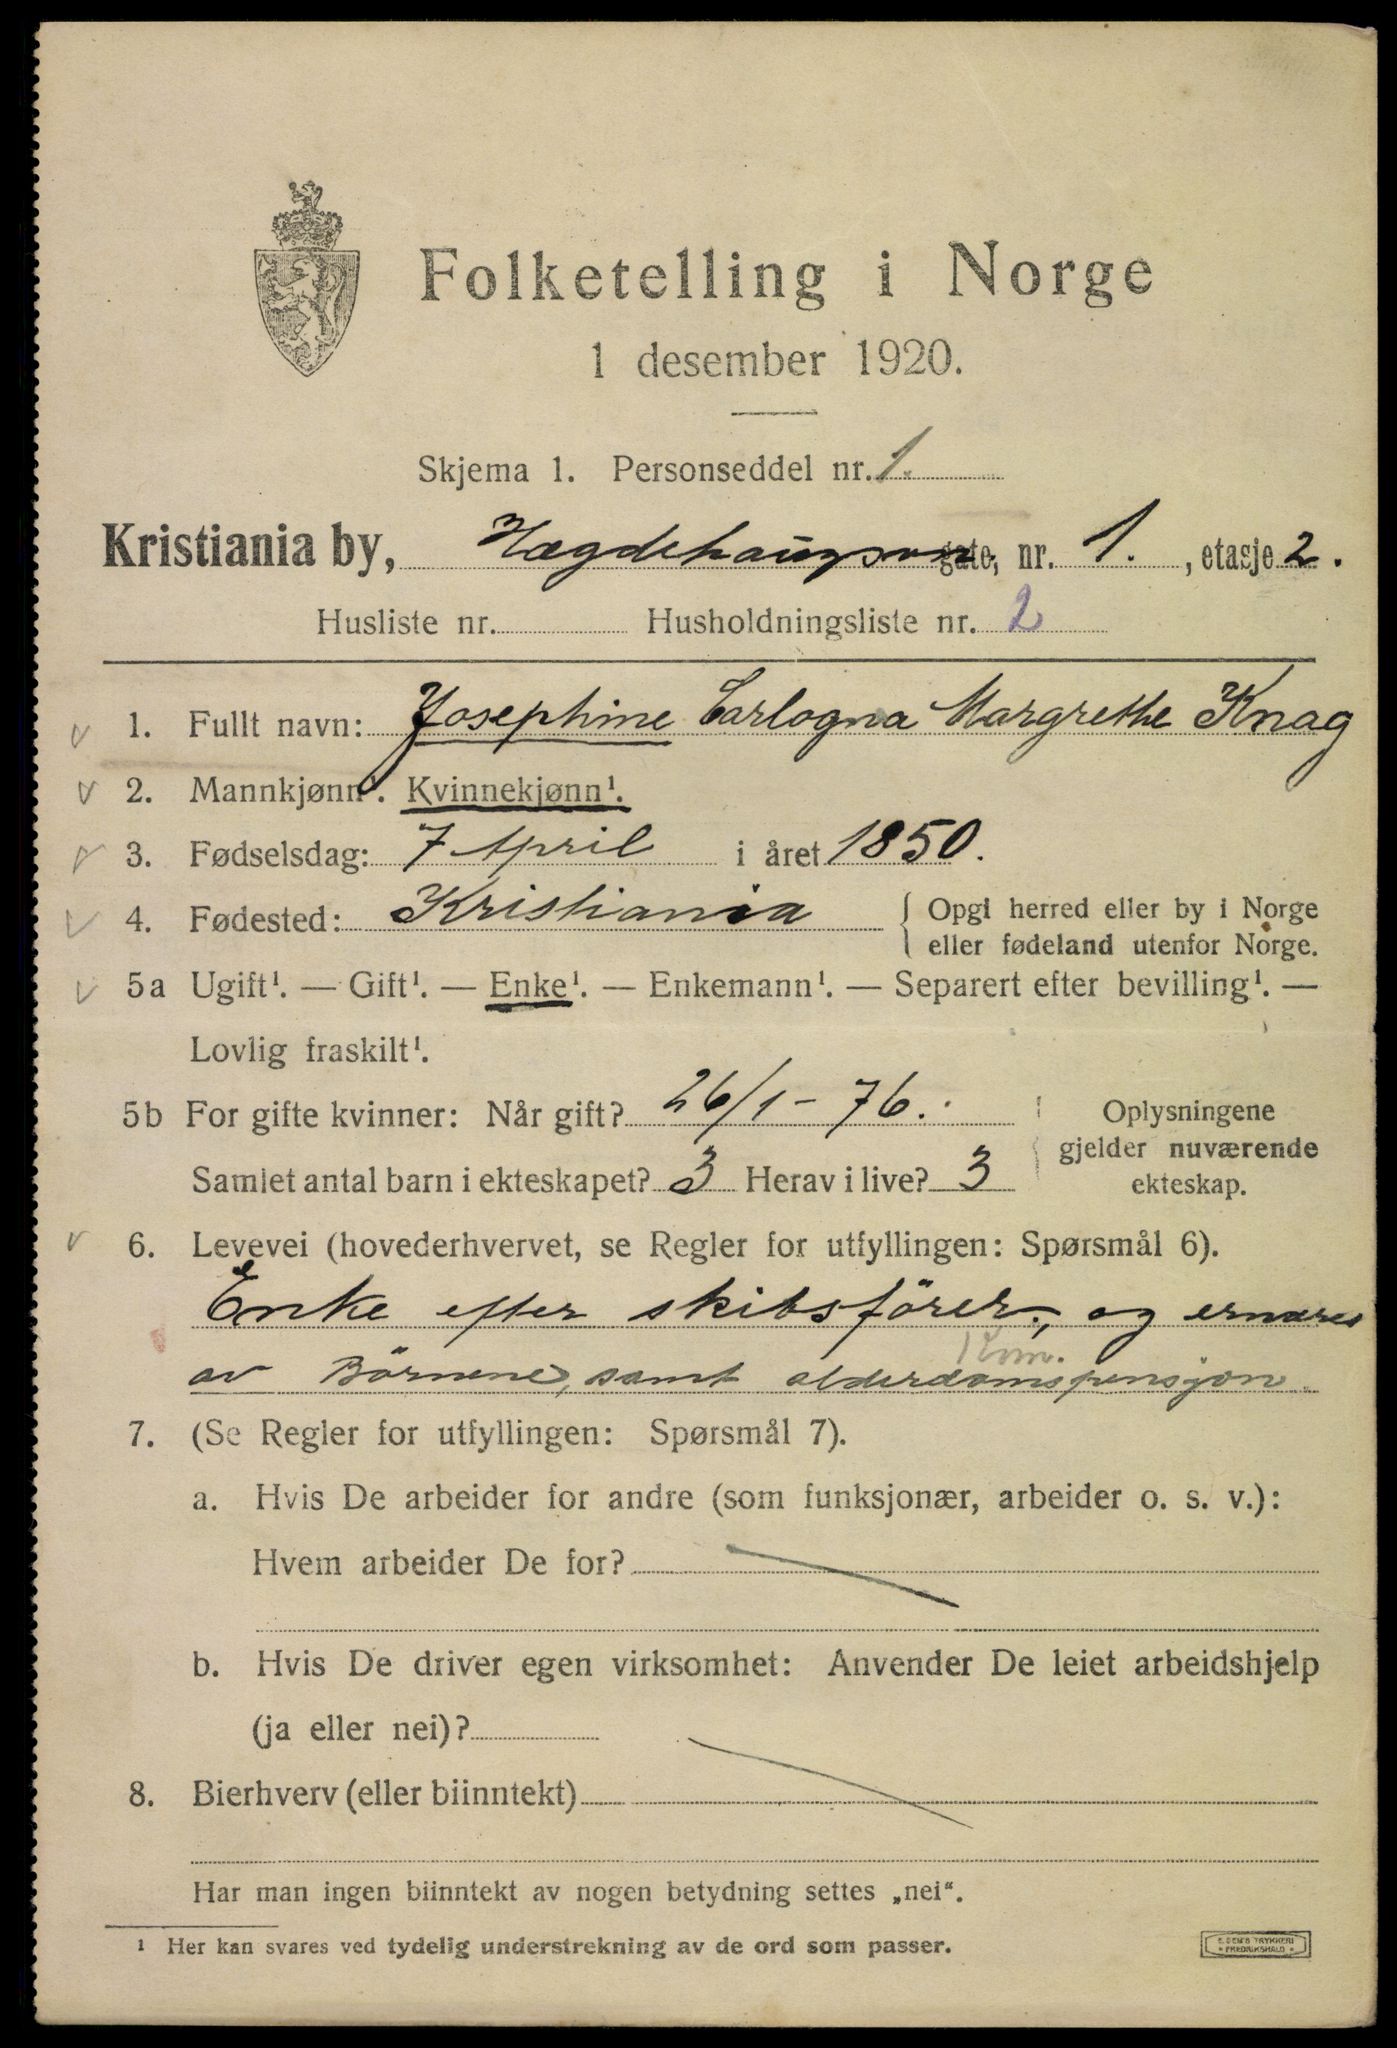 Folketelling i Norge
1 desember 1920.
Skjema 1. Personseddel nr. 1.
Kristiania by, Hægdehaugsvn gate, nr. 1., etasje 2.
Husliste nr. Husholdningsliste nr. 2
1. Fullt navn: Josephine Carlogna Margrethe Knag
2. Mannkjønn¹. Kvinnekjønn¹.
3. Fødselsdag: 7 April i året 1850.
4. Fødested: Kristiania { Opgi herred eller by i Norge
eller fødeland utenfor Norge.
5a Ugift¹. — Gift¹. — Enke¹. — Enkemann¹. — Separert efter bevilling¹. —
Lovlig fraskilt¹.
5b For gifte kvinner: Når gift? 26/1-76. Oplysningene
gjelder nuværende
Samlet antal barn i ekteskapet? 3 Herav i live? 3 ekteskap.
6. Levevei (hovederhvervet, se Regler for utfyllingen: Spørsmål 6).
Enke efter skibsförer, og ernæres
Kom.
av Börnene, samt alderdomspensjon.
7. (Se Regler for utfyllingen: Spørsmål 7).
a. Hvis De arbeider for andre (som funksjonær, arbeider o. s. v.):
Hvem arbeider De for?
b. Hvis De driver egen virksomhet: Anvender De leiet arbeidshjelp
(ja eller nei)?
8. Bierhverv (eller biinntekt)
Har man ingen biinntekt av nogen betydning settes „nei“.
¹ Her kan svares ved tydelig understrekning av de ord som passer.
E. SEM'S TRYKKERI
FREDRIKSHALD